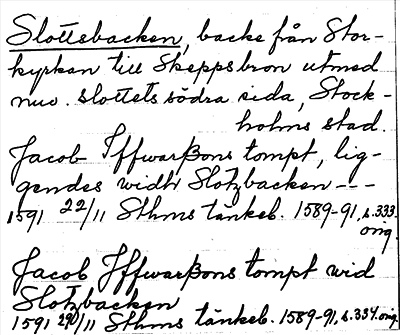 Slottsbacken, backe från Stor-
kyrkan till Skeppsbron utmed
nuv. slottets södra sida, Stock-
holms stad.
Jacob Iffwarßons tompt, lig-
gendes widh Slotzbacken ---
1591 22/11 Sthms tänkeb. 1589-91, s. 333.
orig.
Jacob Iffwarßons tompt wid
Slotzbacken
1591 29/11 Sthms tänkeb. 1589-91, s. 334. orig.